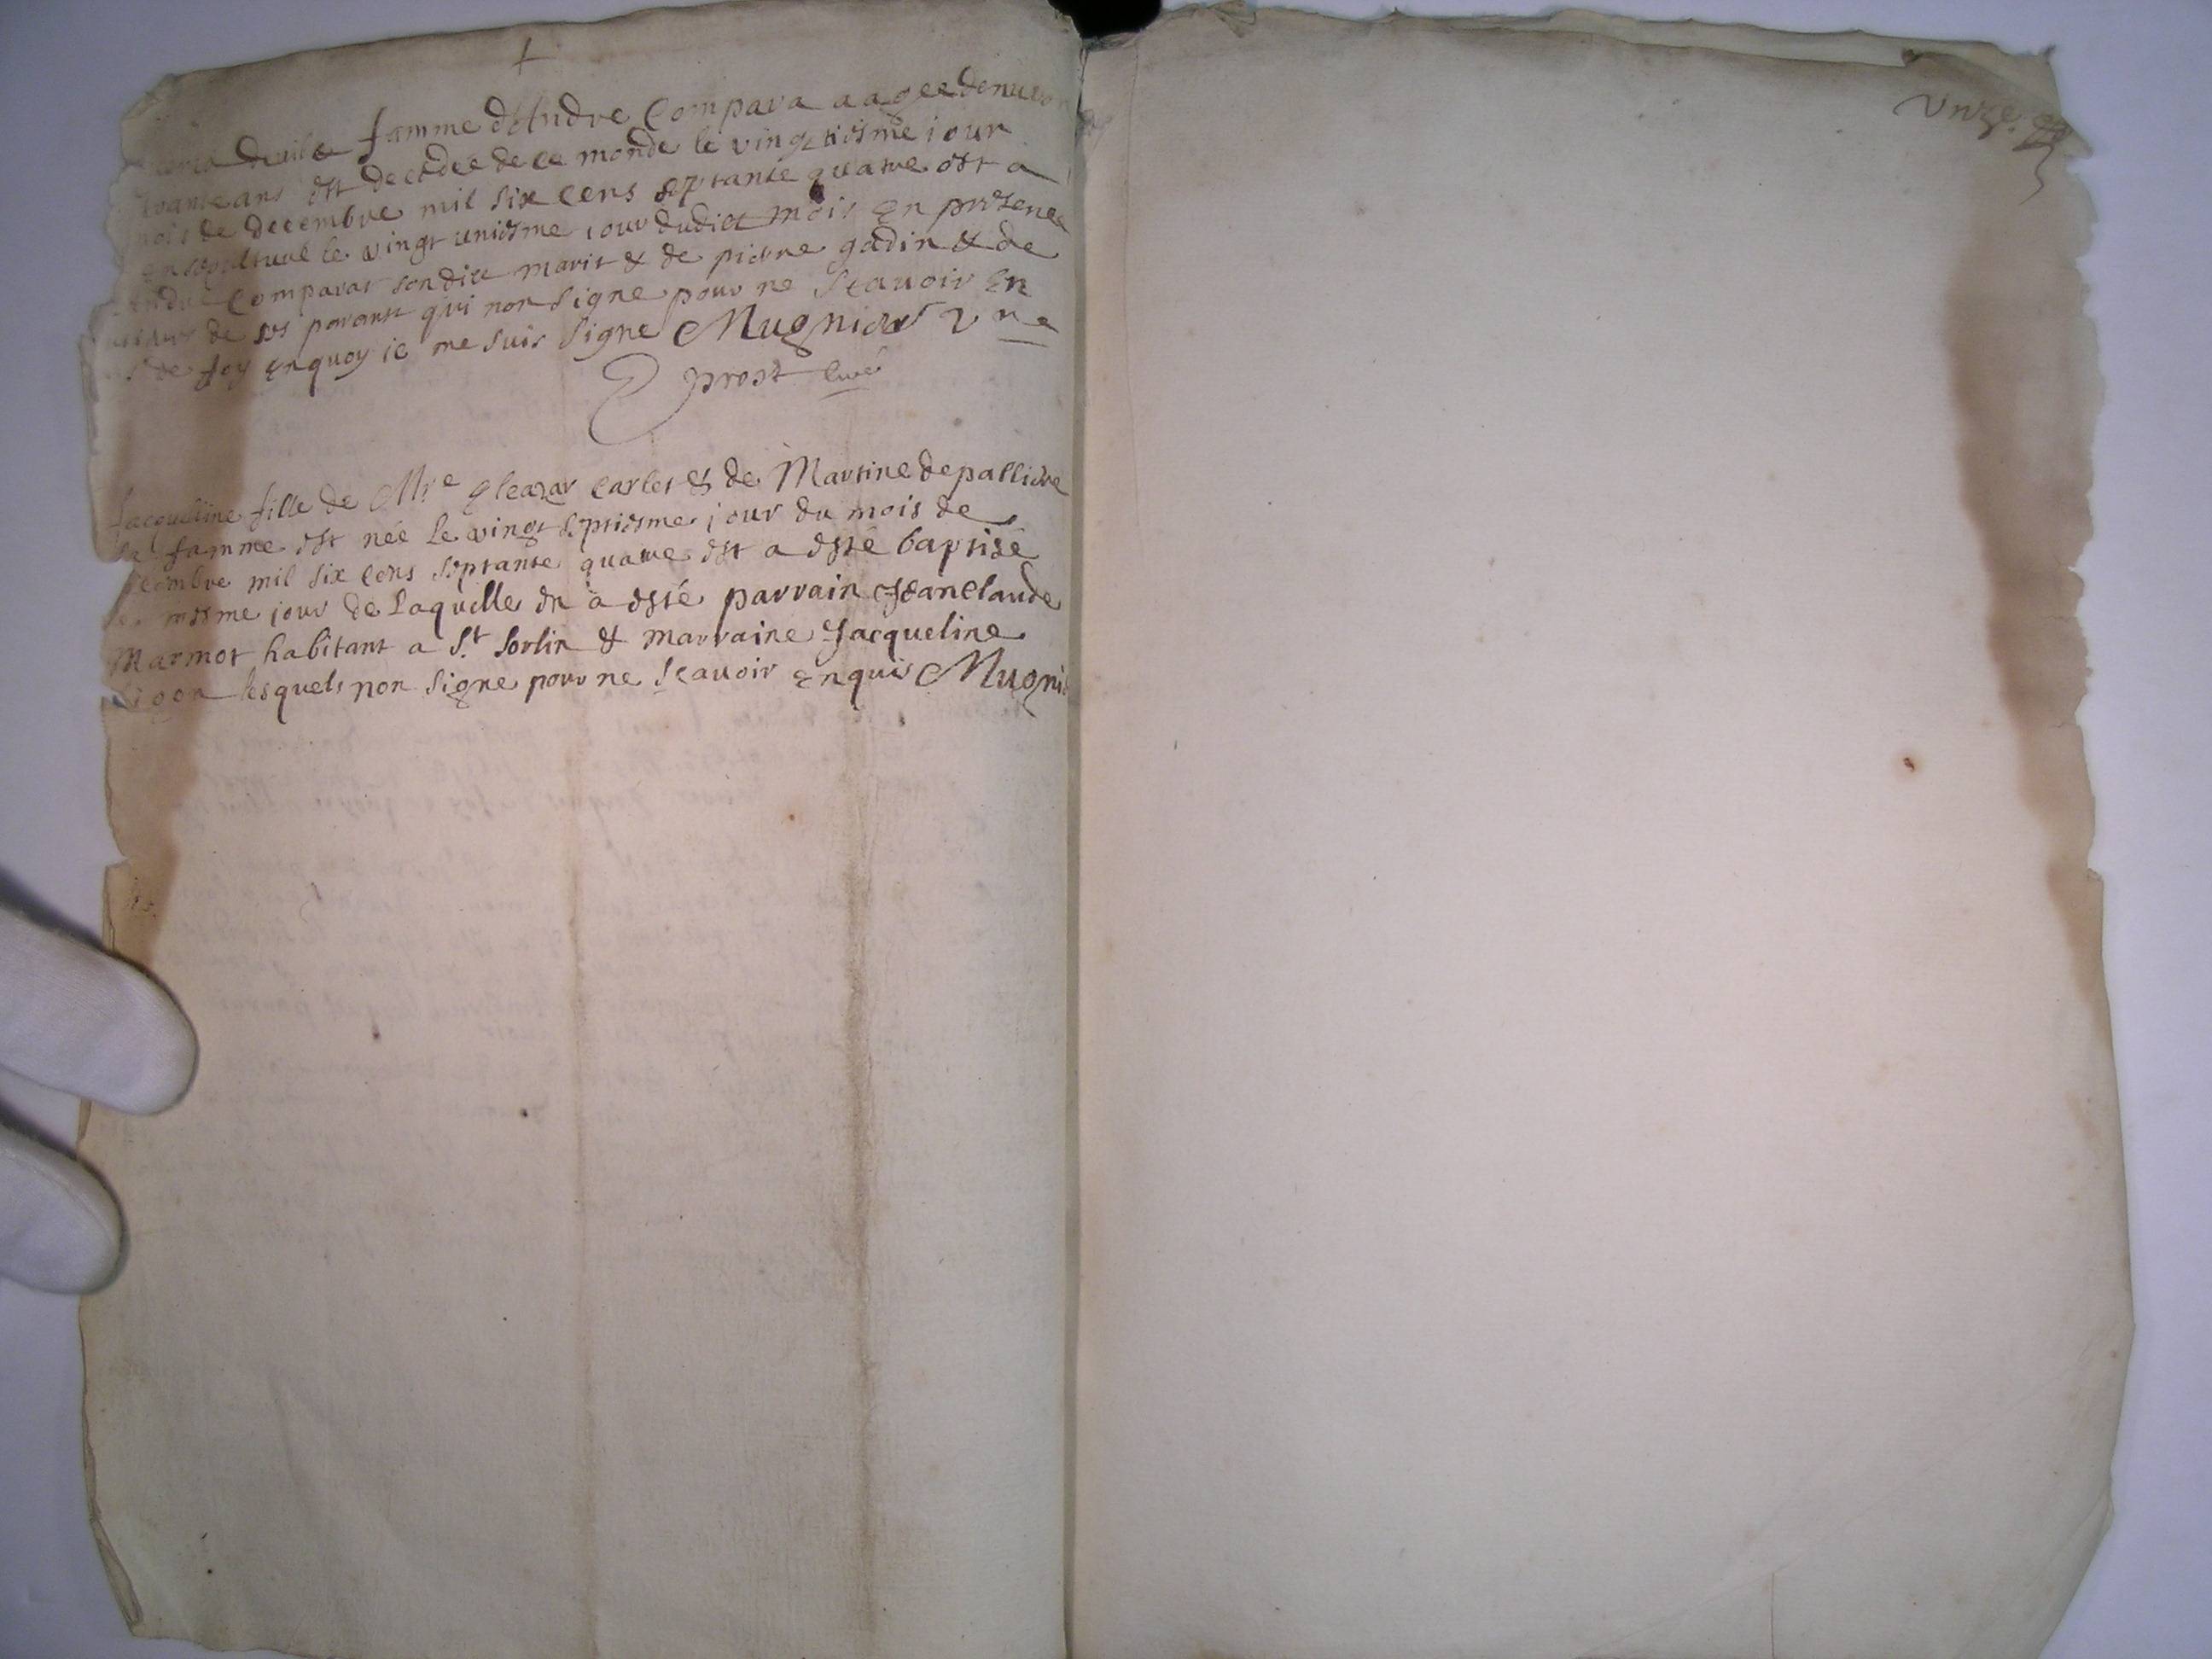 famme dAndre Compara aagee denuiron
ans est decedee de ce monde le vingtiesme iour
mois de decembre mil six cens septante quatre est a
ensepulturé le vingt uniesme iour dudict mois en presence
Andre Comparat sondict marit & de pierre gadin & de
de ses parant qui non signe pour ne scauoir en
de foy enquoy ie me suis signe Mugnier V ne
prost curé
Jacqueline fille de Mre Eleazar Carlet & de Martine depalliere
sa famme est née le vingt septiesme iour du mois de
decembre mil six cens septante quatre est a esté baptisé
le mesme iour de Laquelle en a esté parrain Jeanclaude
Marmot habitant a St Sorlin & marraine Jacqueline
lesquels non signe pour ne scauoir enquis Mugnie
Unze